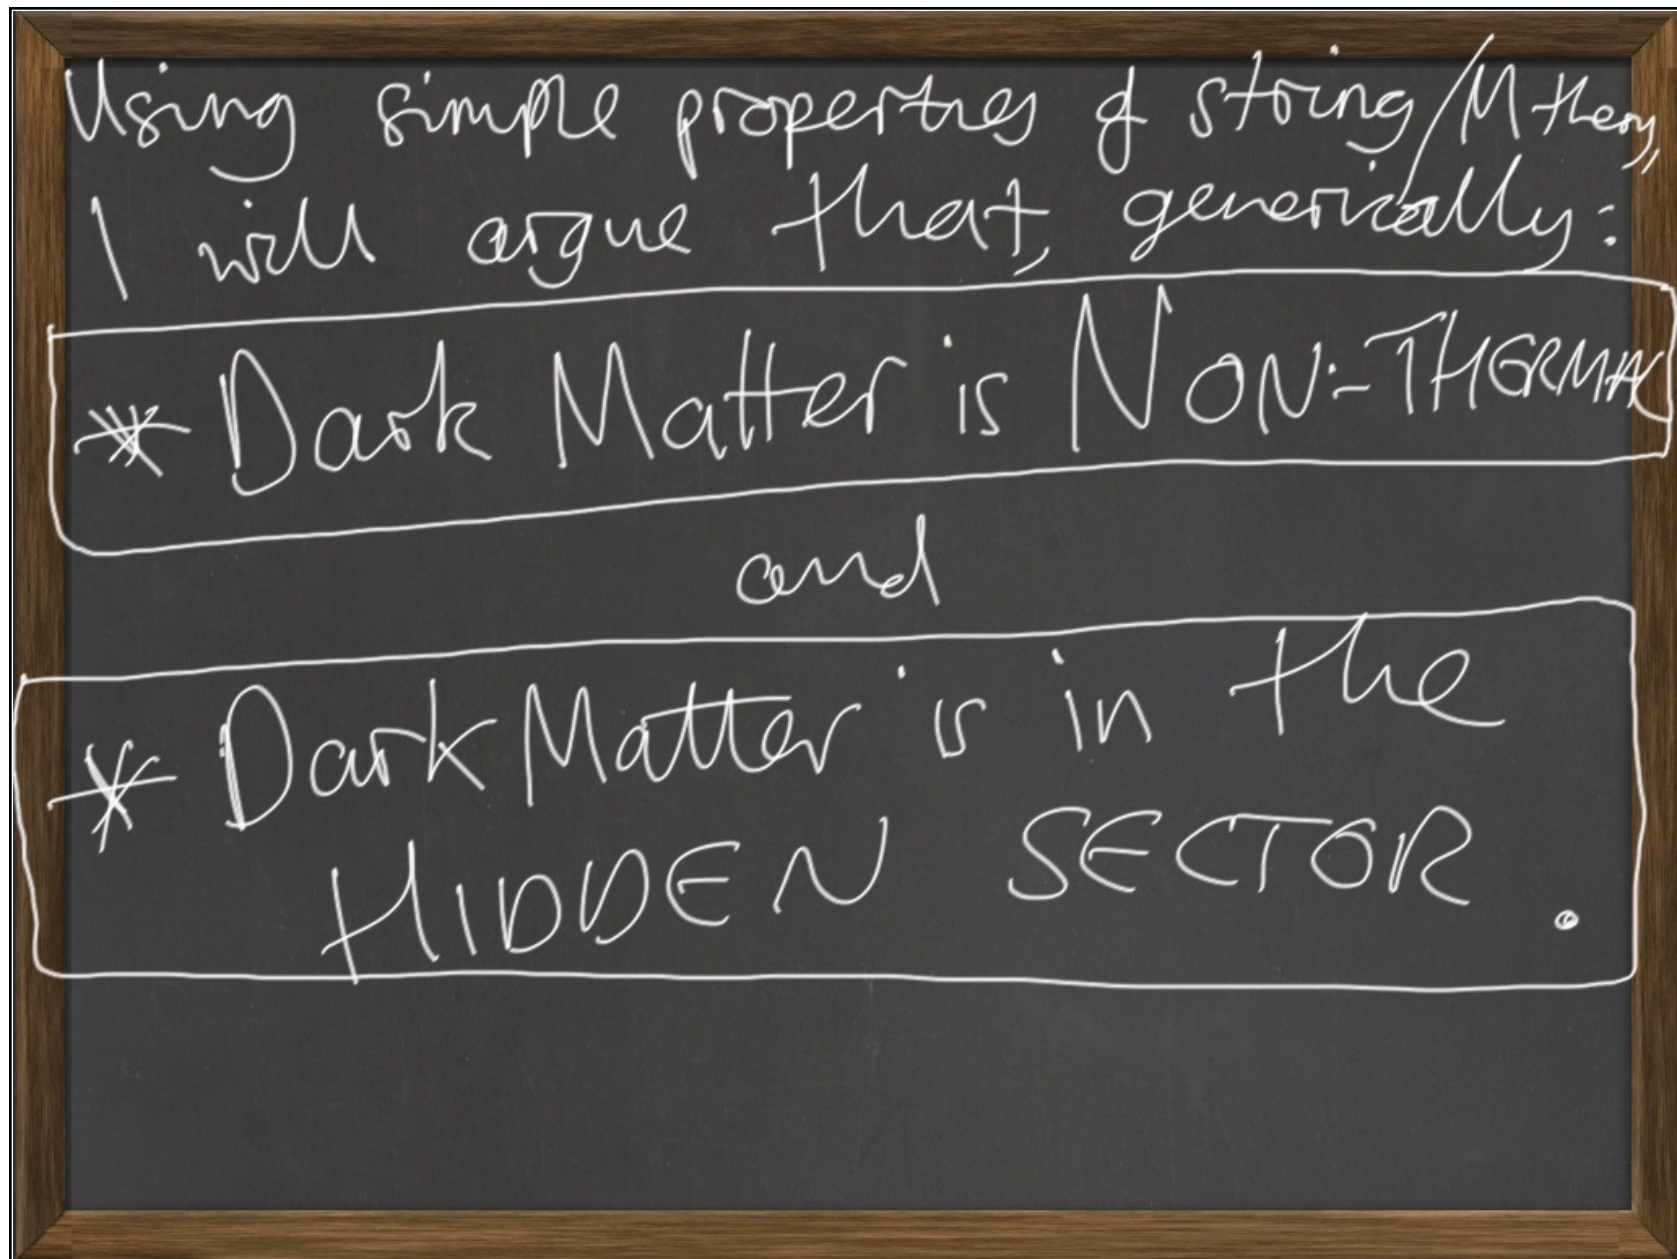 Using simple properties of string/M theory,
I will argue that, generically:
* Dark Matter is NON-THERMAL
and
* Dark Matter is in the
HIDDEN SECTOR.